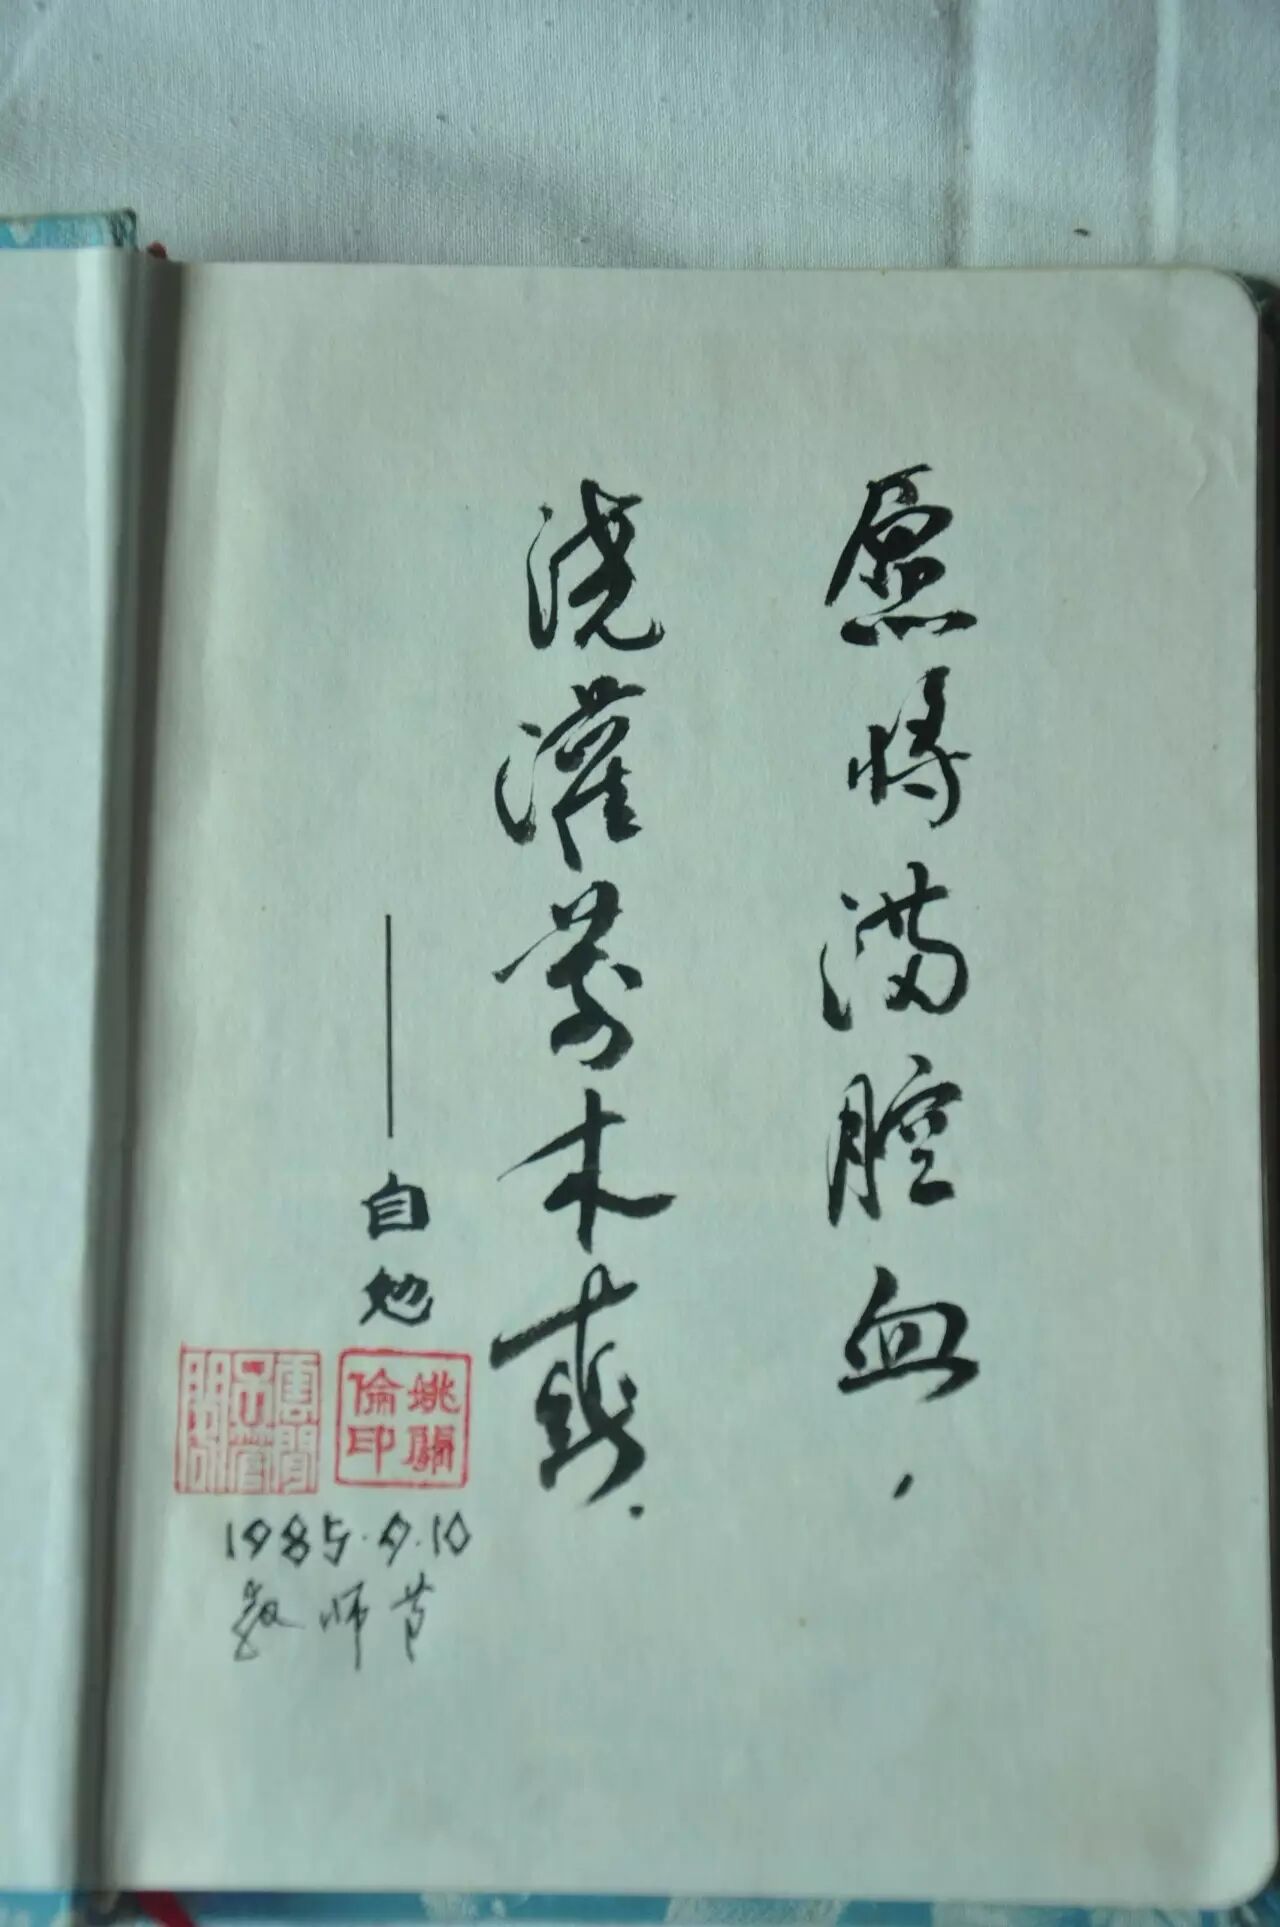 愿将满腔血，
浇灌万木春．
——自勉
姚關倫印
1985.9.10
教师节